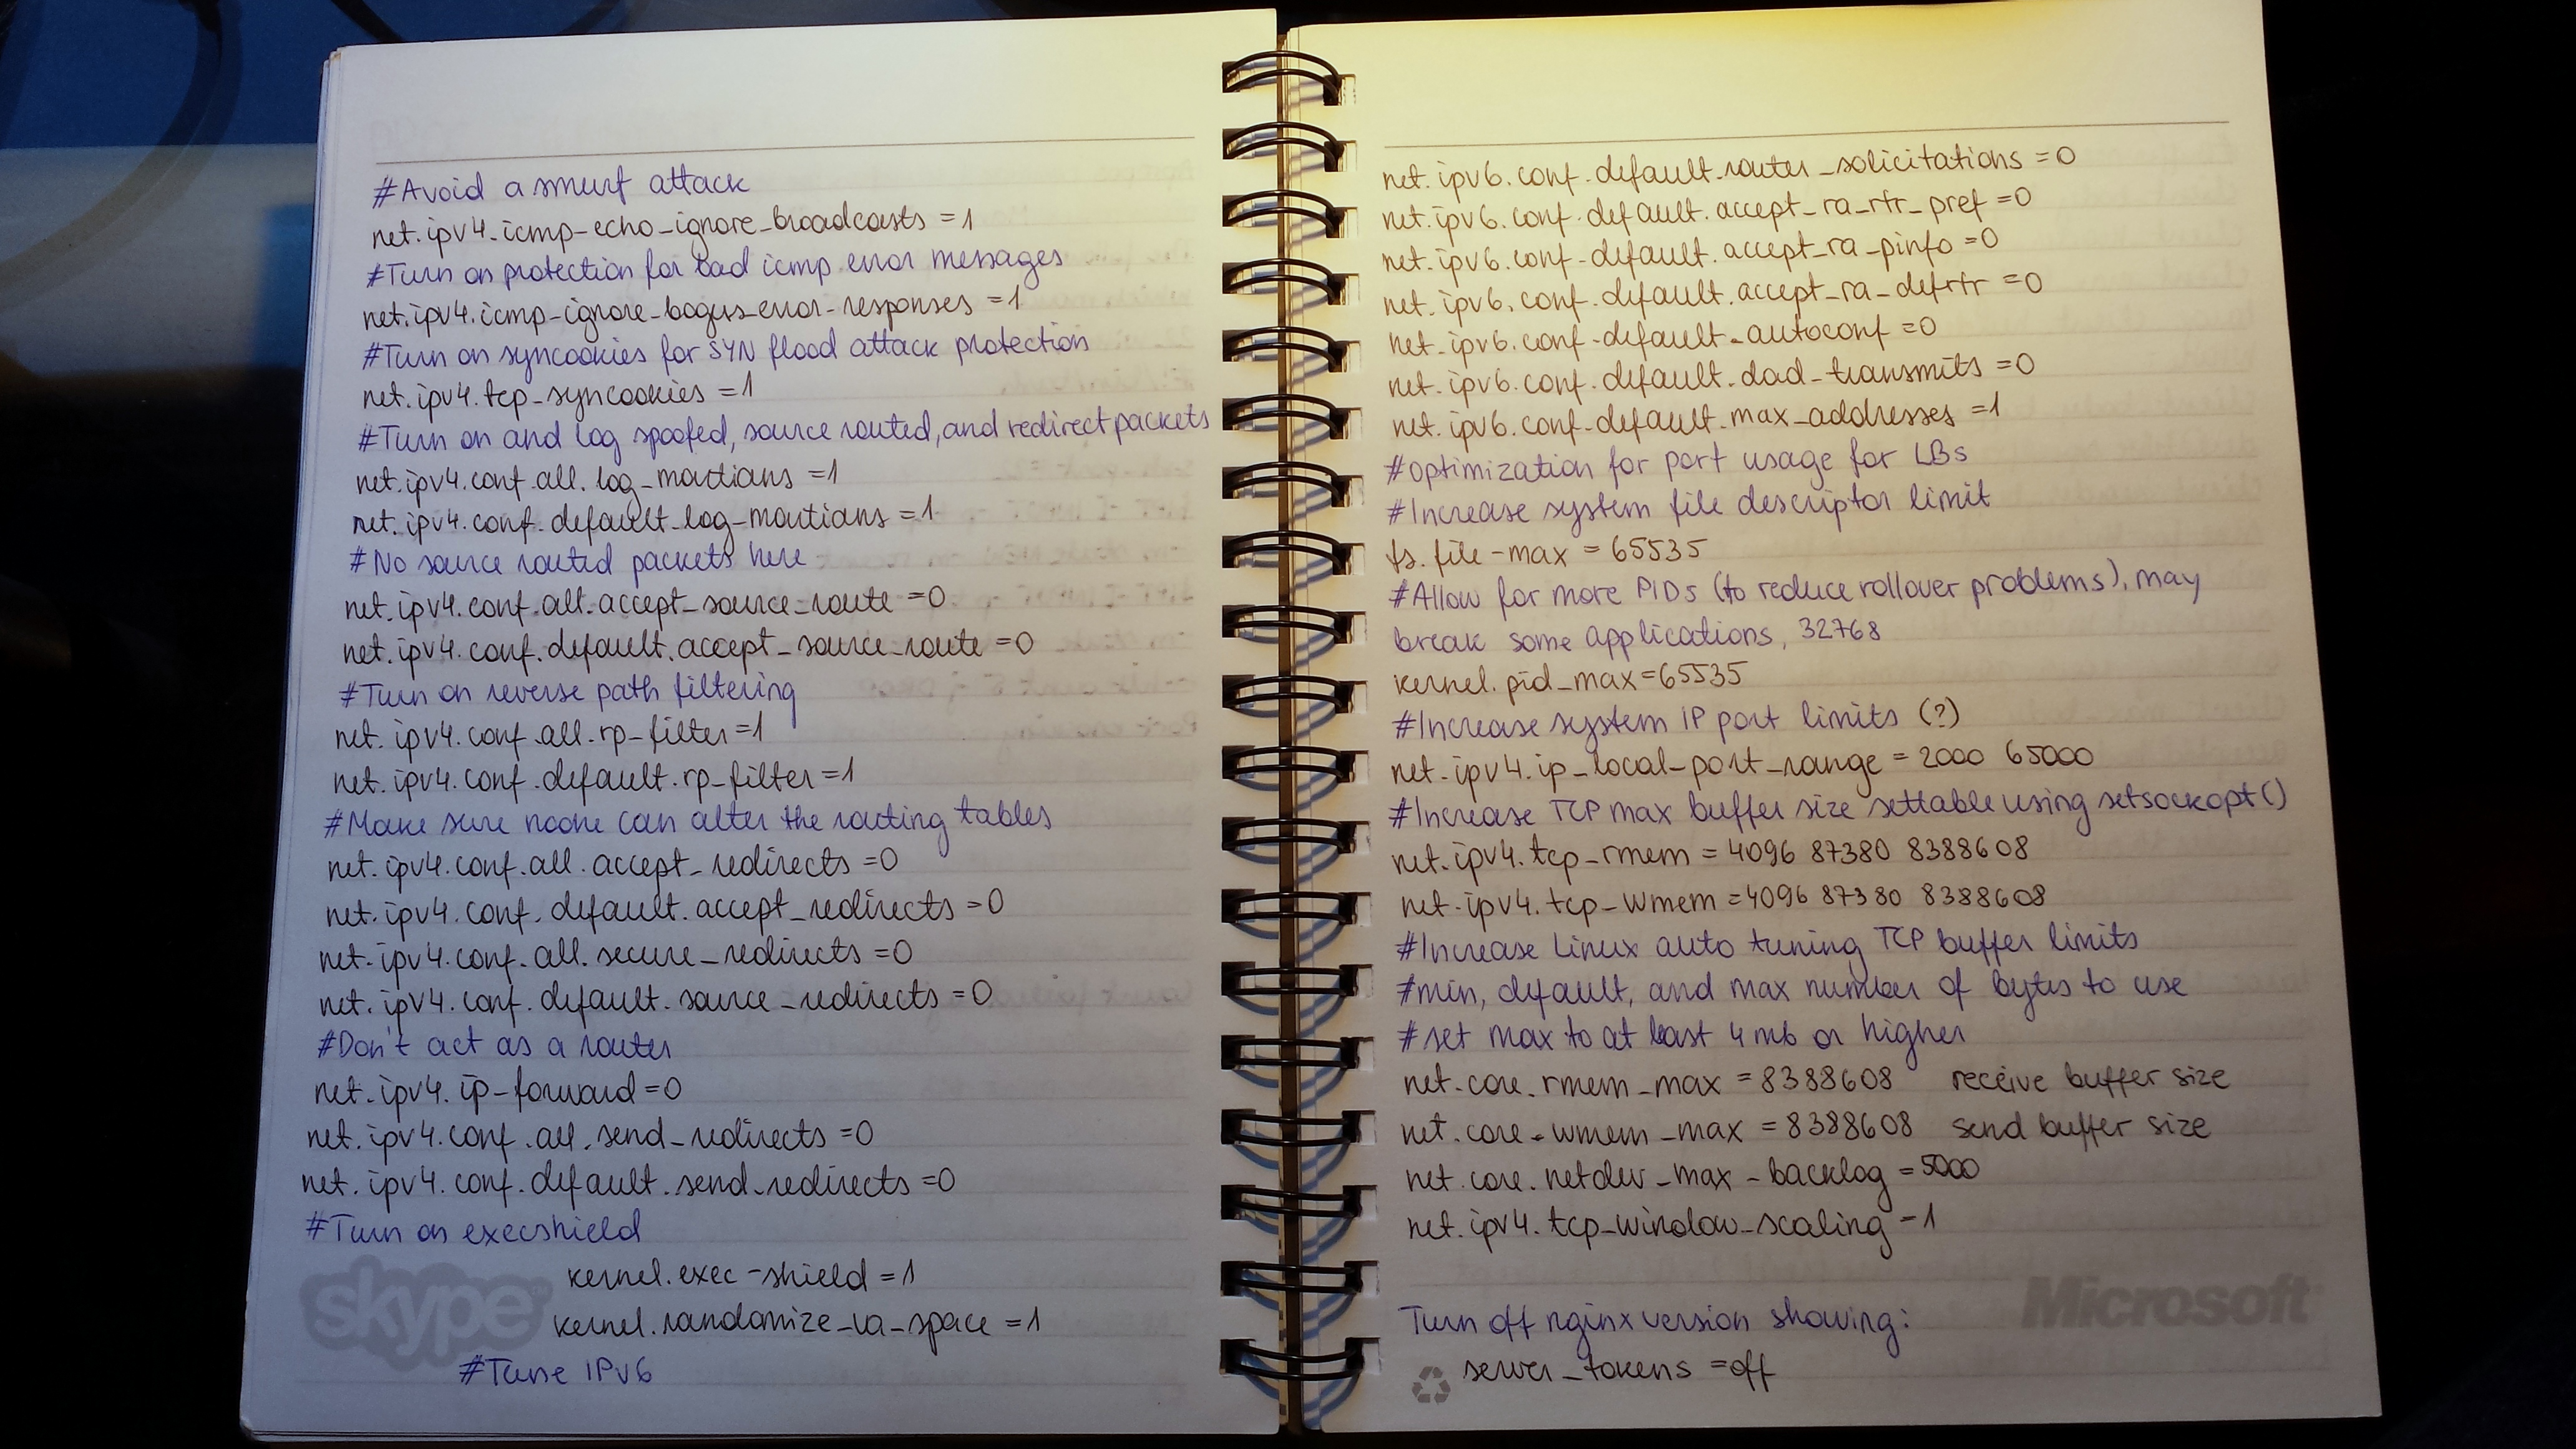 #Avoid a smurf attack
net.ipv4.icmp-echo_ignore_broadcasts =1
#Turn on protection for bad icmp error messages
net.ipv4.icmp-ignore_bogus_error-responses =1
#Turn on syncookies for SYN flood attack protection
net.ipv4.tcp_syncookies =1
#Turn on and log spoofed, source routed, and redirect packets
net.ipv4.conf.all.log_martians =1
net.ipv4.conf.default.log_martians =1
#No source routed packets here
net.ipv4.conf.all.accept_source_route =0
net.ipv4.conf.default.accept_source_route =0
#Turn on reverse path filtering
net.ipv4.conf.all.rp_filter=1
net.ipv4.conf.default.rp_filter=1
#Make sure noone can alter the routing tables
net.ipv4.conf.all.accept_redirects =0
net.ipv4.conf.default.accept_redirects =0
net.ipv4.conf.all.secure_redirects =0
net.ipv4.conf.default.source_redirects =0
#Don't act as a router
net.ipv4.ip-forward=0
net.ipv4.conf.all.send_redirects =0
net.ipv4.conf.default.send_redirects =0
#Turn on execshield
kernel.exec-shield =1
kernel.randomize_va_space =1
#Tune IPv6
skype
net.ipv6.conf.default.router_solicitations =0
net.ipv6.conf.default.accept_ra_rtr_pref =0
net.ipv6.conf.default.accept_ra_pinfo =0
net.ipv6.conf.default.accept_ra_defrtr =0
net.ipv6.conf.default.autoconf =0
net.ipv6.conf.default.dad_transmits =0
net.ipv6.conf.default.max_addresses =1
#optimization for port usage for LBs
#Increase system file descriptor limit
fs.file-max = 65535
#Allow for more PIDs (to reduce rollover problems), may
break some applications, 32768
kernel.pid_max=65535
#Increase system IP port limits (?)
net.ipv4.ip_local_port_range = 2000 65000
#Increase TCP max buffer size settable using setsockopt()
net.ipv4.tcp_rmem = 4096 87380 8388608
net.ipv4.tcp_wmem =4096 87380 8388608
#Increase Linux auto tuning TCP buffer limits
#min, default, and max number of bytes to use
#set max to at least 4mb or higher
net.core.rmem_max =8388608 receive buffer size
net.core.wmem_max =8388608 send buffer size
net.core.netdev_max-backlog =5000
net.ipv4.tcp_window_scaling -1
Microsoft
Turn off nginx version showing:
server_tokens =off